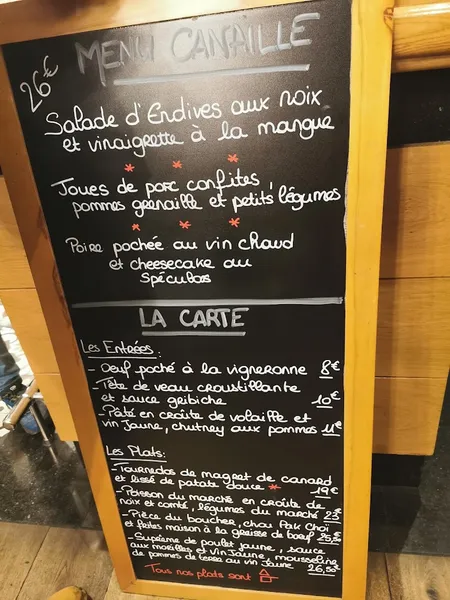 26€
MENU CANAILLE
Salade d'Endives aux noix
et vinaigrette à la mangue
* * *
Joues de porc confites,
pommes grenaille et petits légumes
* * *
Poire pochée au vin chaud
et cheesecake au
Spéculos
LA CARTE
Les Entrées:
- Oeuf poché à la vigneronne 8€
- Tête de veau croustillante
et sauce gribiche 10€
- Pâté en croûte de volaille et
vin Jaune, chutney aux pommes 11€
Les Plats:
- Tournedos de magret de canard
et lissé de patate douce * 19€
- Poisson du marché en croûte de
noix et comté, légumes du marché 23€
- Pièce du boucher, chou Pak Choï
et frites maison à la graisse de boeuf 25€
- Suprême de poulet jaune, sauce
aux morilles et vin Jaune, mousseline
de pommes de terre au vin Jaune 26,50€
Tous nos plats sont